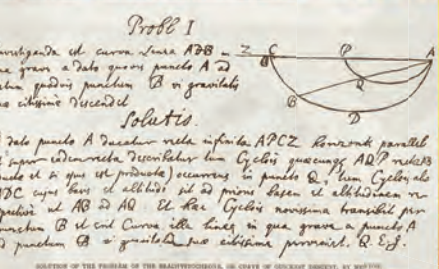 Probl I
Investiganda est curva Linea ADB in
qua grave a dato quovis puncto A ad
datum quodvis punctum B vi gravitatis
suæ citissime descendet
Solutio.
A dato puncto A ducatur recta infinita APCZ horizonti parallela
et super eadem recta describatur tum Cyclois quæcunque AQP rectæ AB
ductæ et si opus est productæ) occurrens in puncto Q, tum Cyclois alia
ADC cujus basis et altitudo sit ad prioris basem et altitudinem re-
spective ut AB ad AQ. Et hæc Cyclois novissima transibit per
punctum B et erit Curva illa linea in qua grave a puncto A
ad punctum B vi gravitatis suæ citissime perveniet. Q.E.I.
Z C P A
B Q
D
SOLUTION OF THE PROBLEM OF THE BRACHISTOCHRONE, OR CURVE OF QUICKEST DESCENT, BY NEWTON